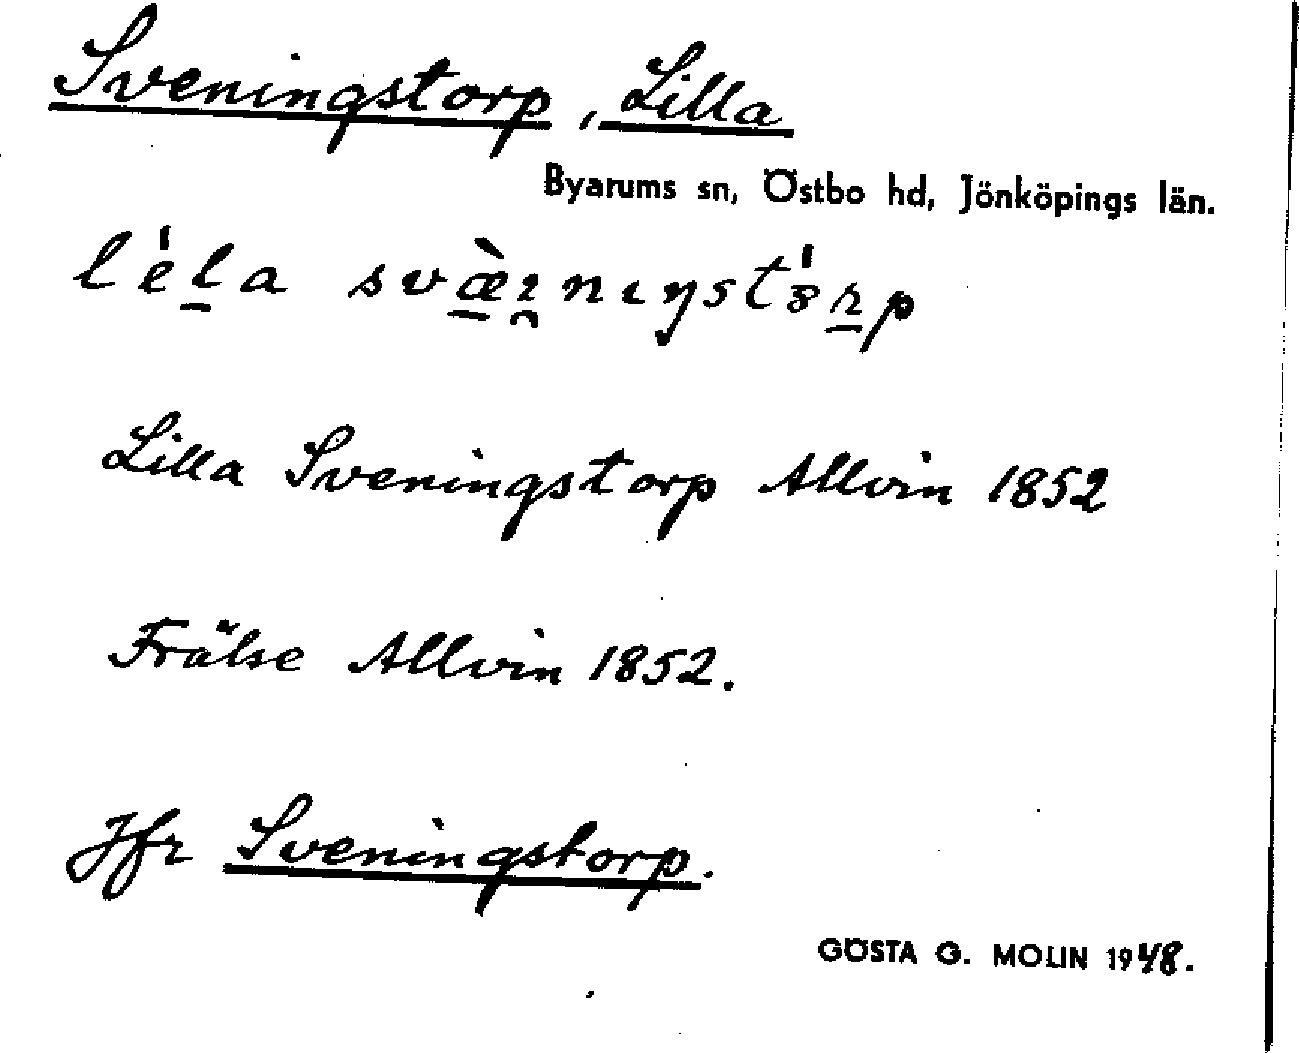 Sveningstorp, Lilla
Byarums sn, Östbo hd, Jönköpings län.
Lilla Sveningstorp Allvin 1852
Frälse Allvin 1852.
Jfr Sveningstorp.
GÖSTA G. MOLIN 1948.